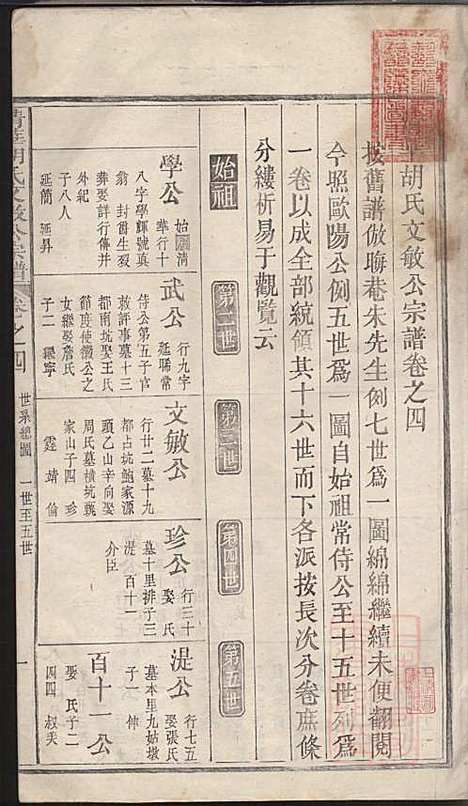 胡氏文敏公宗譜卷之四
按舊譜倣晦菴朱先生例七世為一圖綿綿繼續未便翻閱
今照歐陽公例五世為一圖自始祖常侍公至十五世列為
一卷以成全部統領其十六世而下各派按長次分卷庶條
分縷析易于觀覽云
始祖
第二世
第三世
第四世
第五世
學公
始清
華行十
八字學輝號真
翁 封爵生歿
葬娶詳行傳并
外紀
子八人
延簡 延昇
武公
行九字
延暘常
侍公第五子官
散評事墓十三
都南坑娶王氏
節度使徽公之
女繼娶詹氏
子二 寧
文敏公
行廿二墓十九
都占坑鮑家源
頭乙山辛向娶
周氏墓橫坑
家山子四 珍
霆 靖 倫
珍公
行三十
娶 氏
墓十里排子三
湜 百十一
介臣
湜公
行七五
娶張氏
墓本里九姑墩
子一 伸
百十一公
娶 氏子二
四四 叔夫
清華胡氏文敏公宗譜
卷之四
世系總圖 一世至五世
一